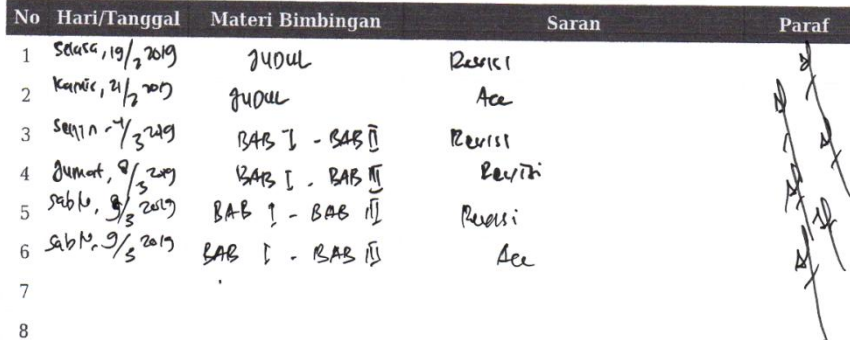 No Hari/Tanggal Materi Bimbingan Saran Paraf
1 Selasa, 19/2 2019 JUDUL Revisi
2 Kamis, 21/2 2019 JUDUL Acc
3 Senin, 4/3 2019 BAB I - BAB II Revisi
4 Jumat, 8/3 2019 BAB I - BAB III Revisi
5 Sabtu, 9/3 2019 BAB I - BAB III Revisi
6 Sabtu, 9/3 2019 BAB I - BAB III Acc
7
8